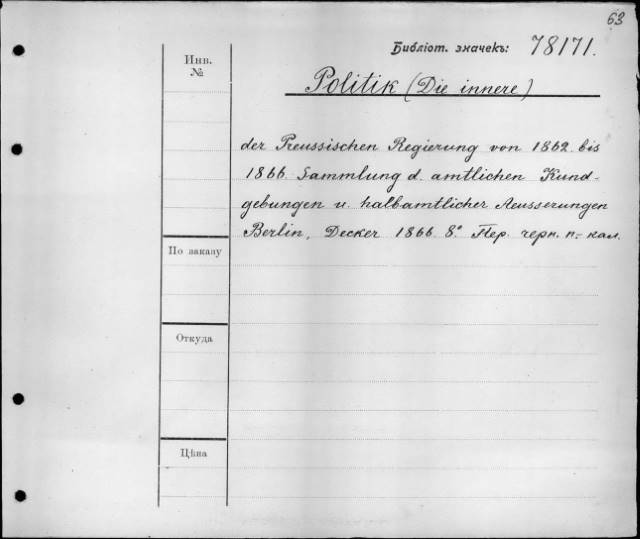 63
Библіот. значекъ: 78171.
Инв.
№
Politik (Die innere)
der Preussischen Regierung von 1862 bis
1866. Sammlung d. amtlichen Kund-
gebungen u. halbamtlicher Aeusserungen
Berlin, Decker 1866. 8.° Пер. черн. п.-кал.
По заказу
Откуда
Цѣна